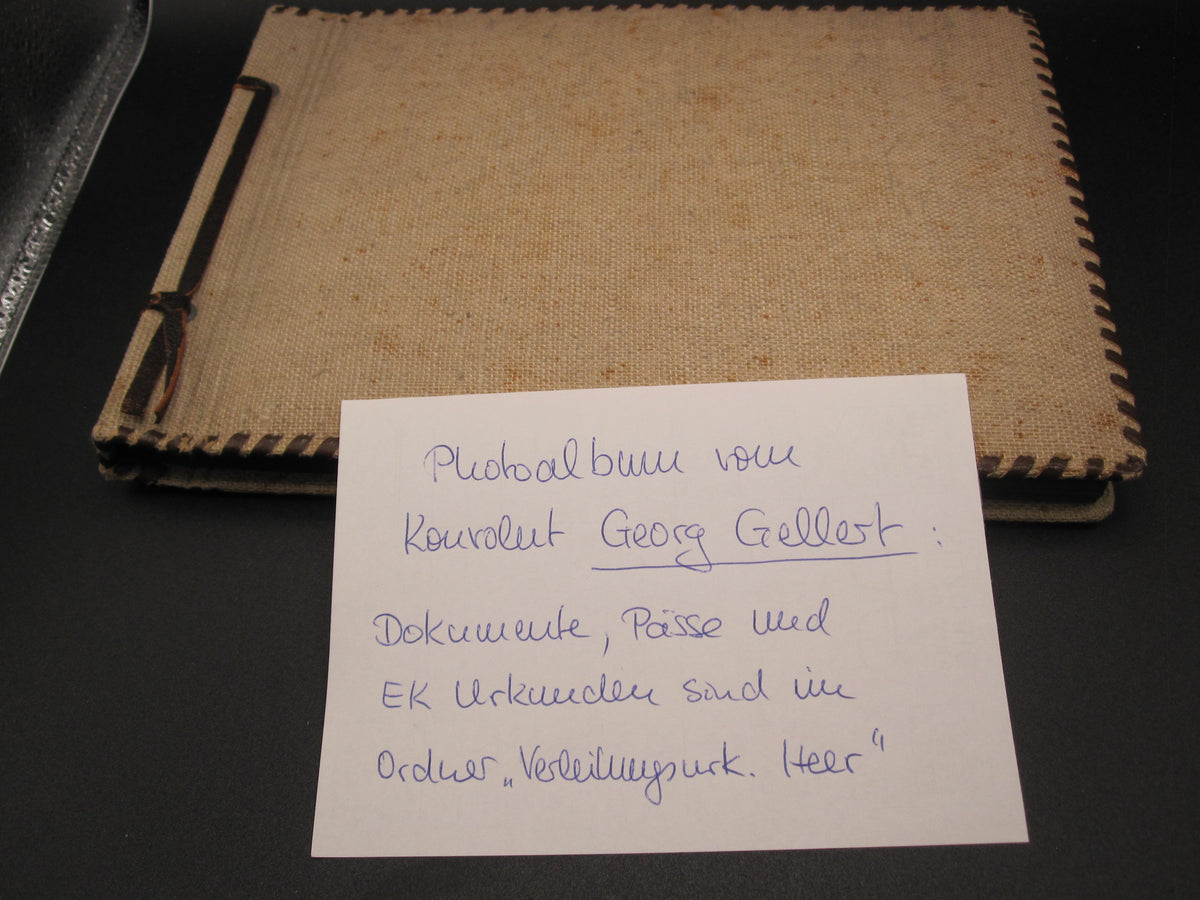 Photoalbum vom
Konvolut Georg Gellert :
Dokumente, Pässe und
EK Urkunden sind im
Ordner „Verleihungsurk. Heer“